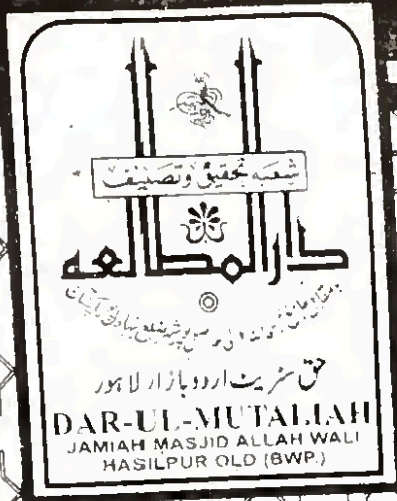 شعبہ تحقیق وتصنیف
دارالمطالعہ
حق سٹریٹ اردو بازار لاہور
DAR-UL-MUTALIAH
JAMIAH MASJID ALLAH WALI
HASILPUR OLD (BWP.)